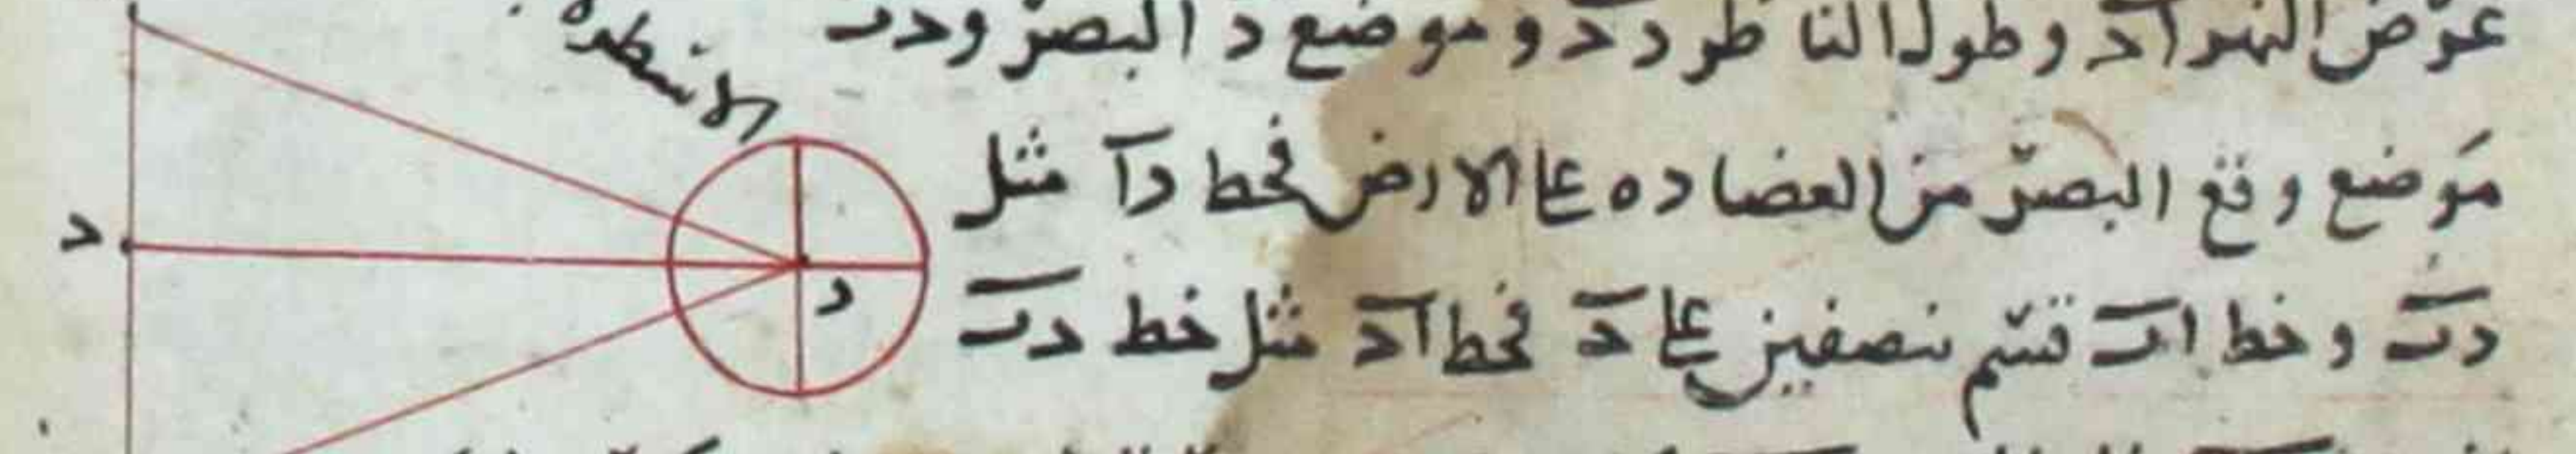 عرض النهر اد وطول الناظر دد وموضع د البصر ودب
موضع وقع البصر من العضاده على الارض فخط دا مثل
دب وخط اب قسم نصفين على د فخط اد مثل خط دب
د
د